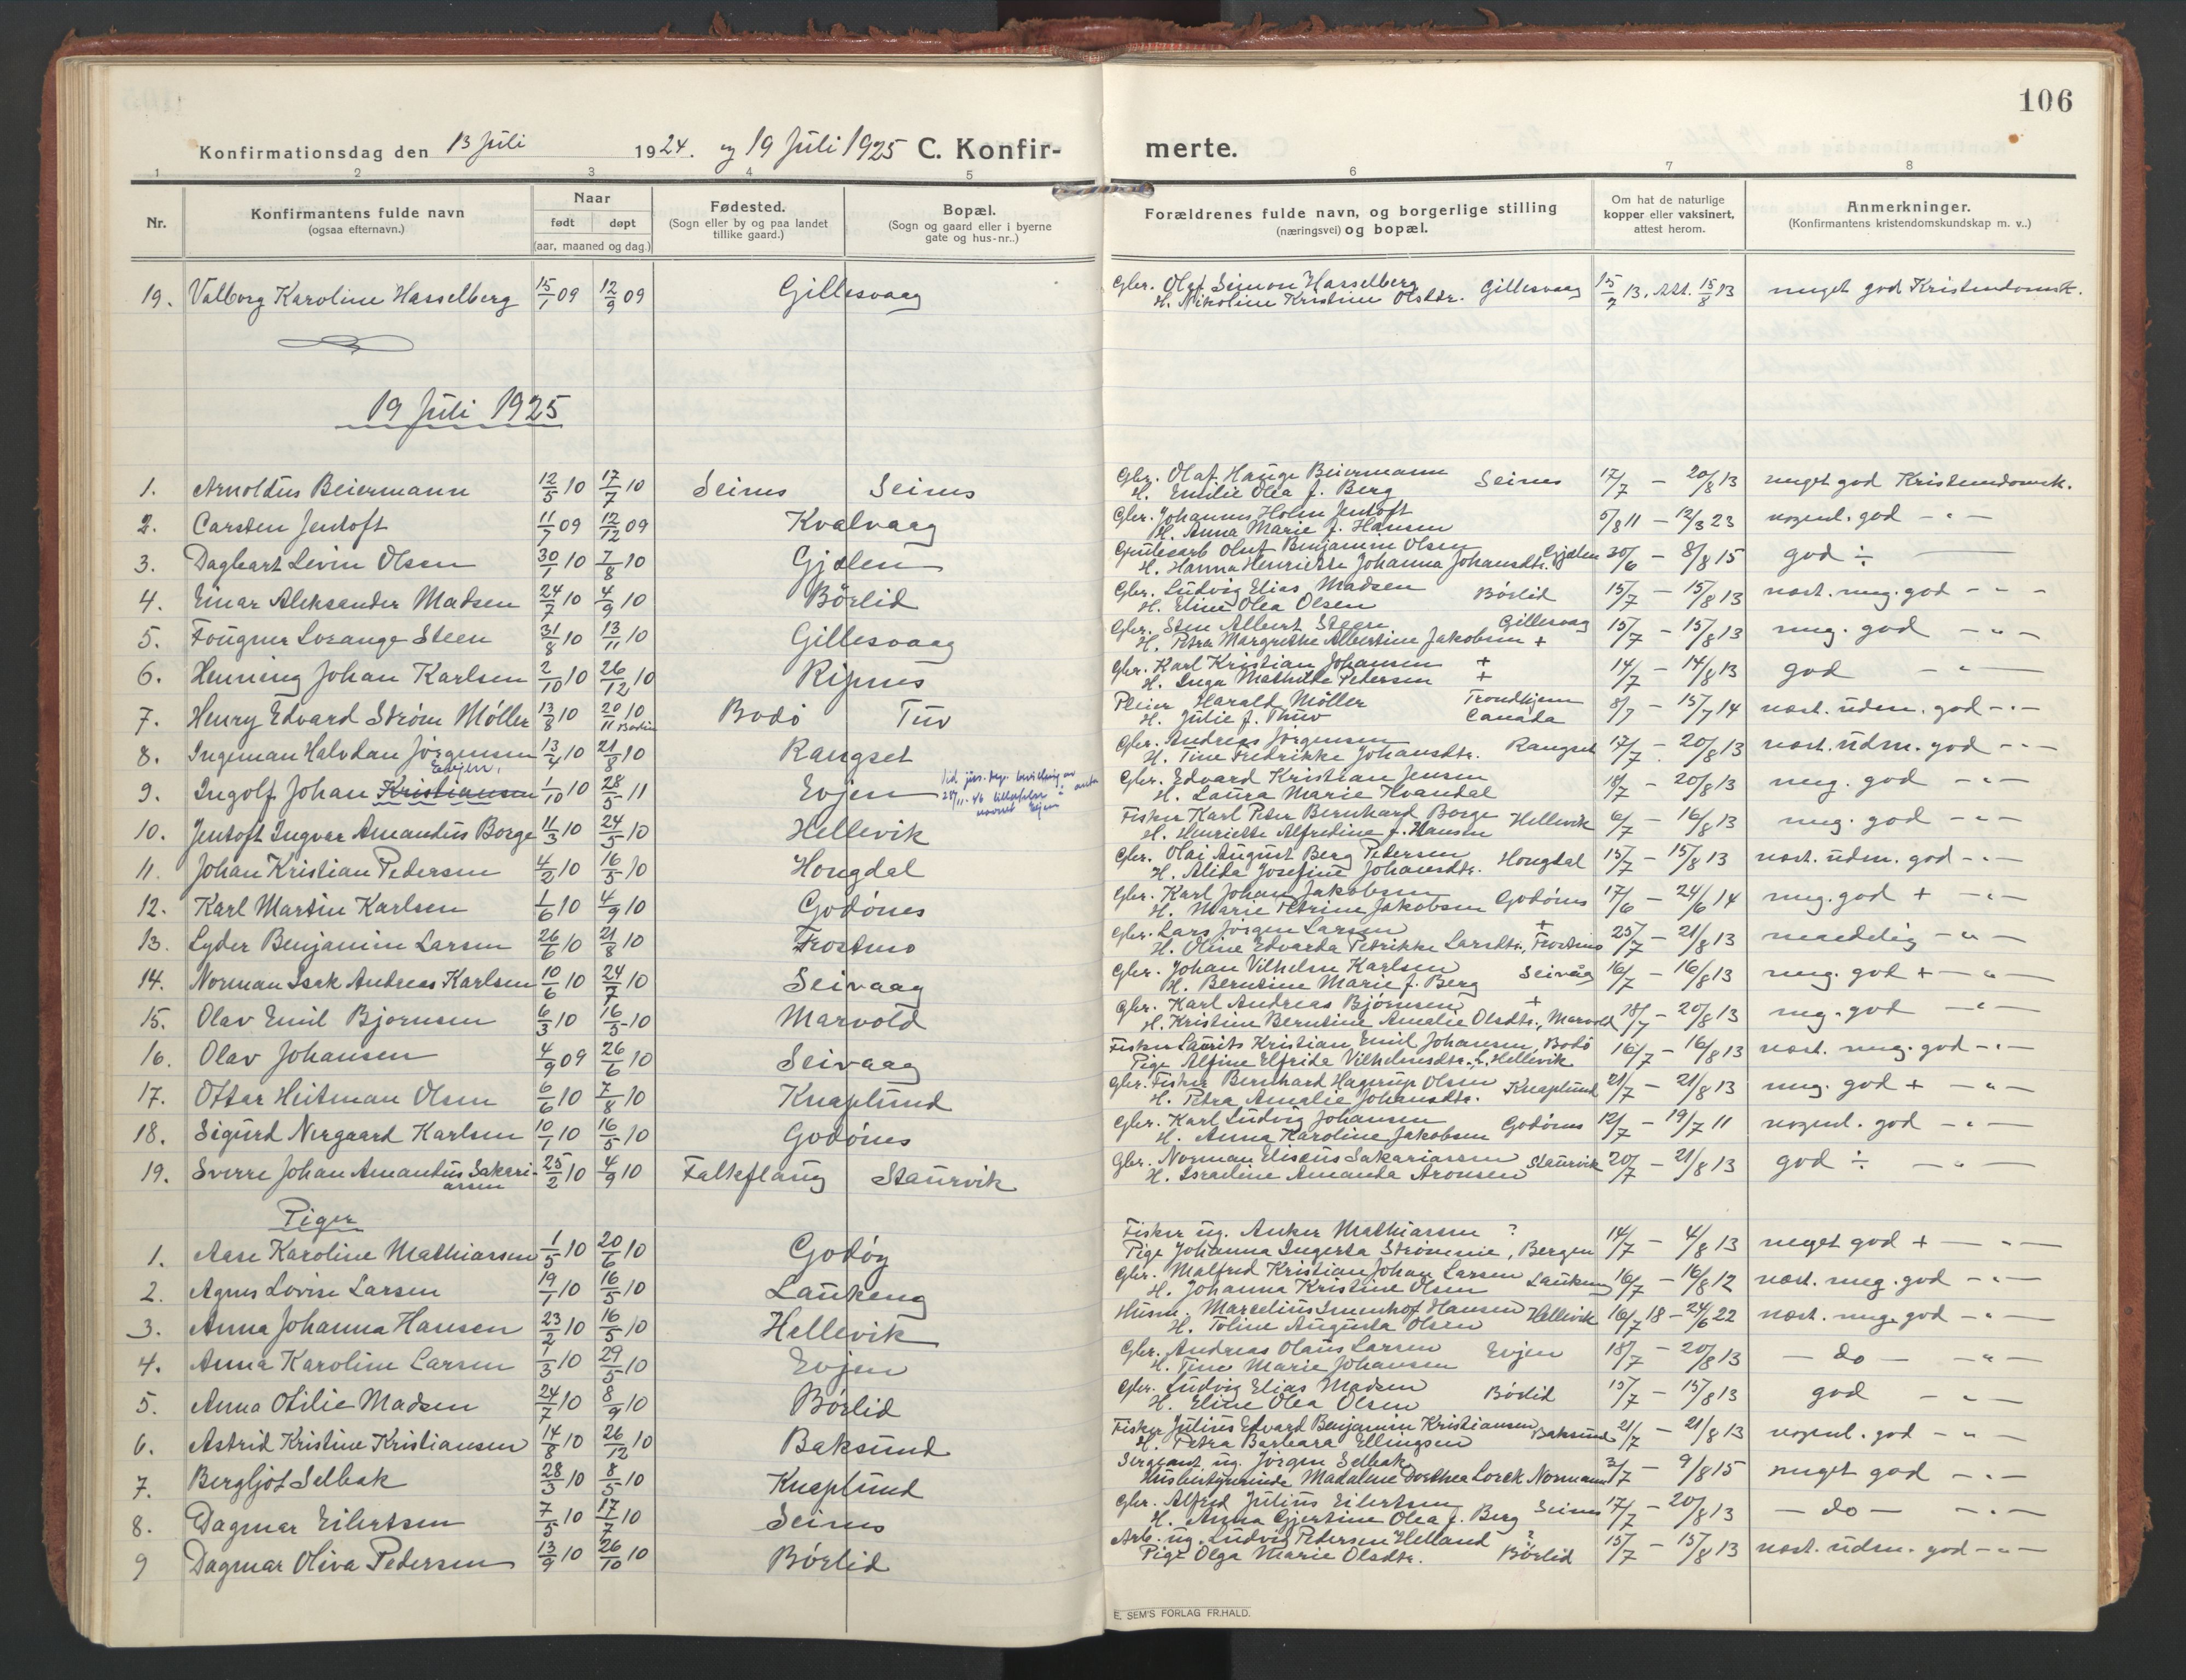 106
Konfirmationsdag den 13 Juli 1924. og 19 Juli 1925 C. Konfirmerte.
1 2 3 4 5 6 7 8
Nr.
Konfirmantens fulde navn (ogsaa efternavn.)
Naar født døpt (aar, maaned og dag.)
Fødested. (Sogn eller by og paa landet tillike gaard.)
Bopæl. (Sogn og gaard eller i byerne gate og hus-nr..)
Forældrenes fulde navn, og borgerlige stilling (næringsvei) og bopæl.
Om hat de naturlige kopper eller vaksinert, attest herom.
Anmerkninger. (Konfirmantens kristendomskundskap m. v..)
19. Valborg Karoline Hasselberg 15/1 09 12/9 09 Gillesvaag Gbr. Olaf Simon Hasselberg
H. Nikoline Kristine Olsdtr. Gillesvaag 15/7 13. Att. 15/8 13 meget god Kristendomsk.
19 Juli 1925
1. Arnoldus Beiermann 12/5 10 17/7 10 Seines Seines Gbr. Olaf Hauge Beiermann
H. Emilie Olea f. Berg Seines 17/7 - 20/8 13 meget god Kristendomsk.
2. Carsten Jentoft 11/7 09 12/12 09 Kvalvaag Gbr. Johannes Holm Jentoft
H. Anna Marie f. Hansen 5/8 11 - 12/3 23 nogenl. god - " -
3. Dagbart Levin Olsen 30/1 10 7/8 10 Gjælen Grubearb Oluf Benjamin Olsen
H. Hanna Henriette Johanna Johansdtr. Gjælen 30/6 - 8/8 15 god ÷ -
4. Einar Aleksander Madsen 24/7 10 4/9 10 Børlid Gbr. Ludvig Elias Madsen
H. Eline Olea Olsen Børlid 15/7 - 15/8 13 næst. meg. god - " -
5. Fougner Lorange Steen 31/8 10 13/11 10 Gillesvaag Gbr. Sten Albert Steen Gillesvaag
H. Petra Margrethe Albertine Jakobsen + 15/7 - 15/8 13 meg. god - " -
6. Henning Johan Karlsen 2/10 10 26/12 10 Ripnes Gbr. Karl Kristian Johansen +
H. Inga Mathilde Petersen + 14/7 - 14/8 13 god - " -
7. Henry Edvard Strøm Møller 13/8 10 20/11 10 Bodin Bodø Tuv Pleier Harald Møller Trondhjem
H. Julie f. Thuv Canada 8/7 - 15/7 14 næst. udm. god - " -
8. Ingeman Halvdan Jørgensen 13/4 10 21/8 10 Rangset Gbr. Andreas Jørgensen
H. Tine Fredrikke Johansdtr. Rangset 17/7 - 20/8 13 næst. udm. god - " -
9. Ingolf Johan Kristiansen Evjen. 1/10 10 28/5 11 Evjen Gbr. Edvard Kristian Jensen
H. Laura Marie Kvandal 18/7 - 20/8 13 meg. god - " -
10. Jentoft Ingvar Amandus Borge 11/3 10 24/5 10 Hellevik Fisker Karl Peter Bernhard Borge
H. Henriette Alfredine f. Hansen Hellevik 6/7 - 16/8 13 meg. god - " -
11. Johan Kristian Pedersen 4/2 10 16/5 10 Hongdal Gbr. Olai August Berg Pedersen
H. Alida Josefine Johansdtr. Hongdal 15/7 - 15/8 13 næst. udm. god - " -
12. Karl Martin Karlsen 1/6 10 4/9 10 Godønes Gbr. Karl Johan Jakobsen
H. Marie Petrine Jakobsen Godønes 17/6 - 24/6 14 meg. god + - " -
13. Lyder Benjamin Larsen 26/6 10 21/8 10 Frostmo Gbr. Lars Jørgen Larsen +
H. Oline Edvarda Petrikke Larsdtr., Frostmo 25/7 - 21/8 13 maadelig - " -
14. Norman Isak Andreas Karlsen 10/6 10 24/7 10 Seivaag Gbr. Johan Vilhelm Karlsen
H. Berntine Marie f. Berg Seivåg 16/7 - 16/8 13 meg. god + - " -
15. Olav Emil Bjørnsen 6/3 10 16/5 10 Marvold Gbr. Karl Andreas Bjørnsen +
H. Kristine Berntine Amalie Olsdtr., Marvold 18/7 - 20/8 13 meg. god - " -
16. Olav Johansen 4/9 09 26/6 10 Seivaag Fisker Laurits Kristian Emil Johansen, Bodø
Pige Alfine Elfride Vilhelmsdtr., Hellevik 16/7 - 16/8 13 næst. meg. god - " -
17. Ottar Heitman Olsen 6/6 10 7/8 10 Knaplund Gbr. Fisker Bernhard Hagerup Olsen
H. Petra Amalie Johansdtr. Knaplund 21/7 - 21/8 13 meg. god + - " -
18. Sigurd Nergaard Karlsen 10/1 10 16/5 10 Godønes Gbr. Karl Ludvig Johansen
H. Anna Karoline Jakobsen Godønes 12/7 - 19/7 11 nogenl. god - " -
19. Sverre Johan Amandus Sakariassen 25/2 10 4/9 10 Falkeflaug Staurvik Gbr. Norman Eliseus Sakariassen
H. Israeline Amanda Aronsen Staurvik 20/7 - 21/8 13 god ÷ - " -
Piger
1. Aase Karoline Mathiassen 1/5 10 20/6 10 Godøy Fisker ug. Anker Mathiassen ?
Pige Johanna Ingerta Strømmie, Bergen 14/7 - 4/8 13 meget god + - " -
2. Agnes Lovise Larsen 19/1 10 16/5 10 Laukeng Gbr. Malfred Kristian Johan Larsen
H. Johanna Kristine Olsen Laukeng 16/7 - 16/8 12 næst. meg. god - " -
3. Anna Johanna Hansen 23/2 10 16/5 10 Hellevik Husm. Marcelius Imenhof Hansen
H. Toline Augusta Olsen Hellevik 16/7 18 - 24/6 22 næst. meg. god - " -
4. Anna Karoline Larsen 1/3 10 29/5 10 Evjen Gbr. Andreas Olaus Larsen
H. Tine Marie Johansen Evjen 18/7 - 20/8 13 - do - - " -
5. Anna Otilie Madsen 24/7 10 8/9 10 Børlid Gbr. Ludvig Elias Madsen
H. Eline Olea Olsen Børlid 15/7 - 15/8 13 god - " -
6. Astrid Kristine Kristiansen 14/8 10 26/12 10 Baksund Fisker Julius Edvard Benjamin Kristiansen
H. Petra Barbara Ellingsen Baksund 21/7 - 21/8 13 nogenl. god - " -
7. Bergljot Selbak 28/3 10 8/5 10 Knaplund Sergeant ug. Jørgen Selbak
Husbestyrerinde Madaline Dorthea Lorek Normann 3/7 - 9/8 15 meget god - " -
8. Dagmar Eilertsen 7/5 10 17/7 10 Seines Gbr. Alfred Julius Eilertsen
H. Anna Gjertine Olea f. Berg Seines 17/7 - 20/8 13 - do - - " -
9 Dagmar Oliva Pedersen 13/9 10 26/10 10 Børlid Arb. ug. Ludvig Pedersen Helland ?
Pige Olga Marie Olsdtr. Børlid 15/7 - 15/8 13 næst. udm. god - " -
E. SEM'S FORLAG FR.HALD.